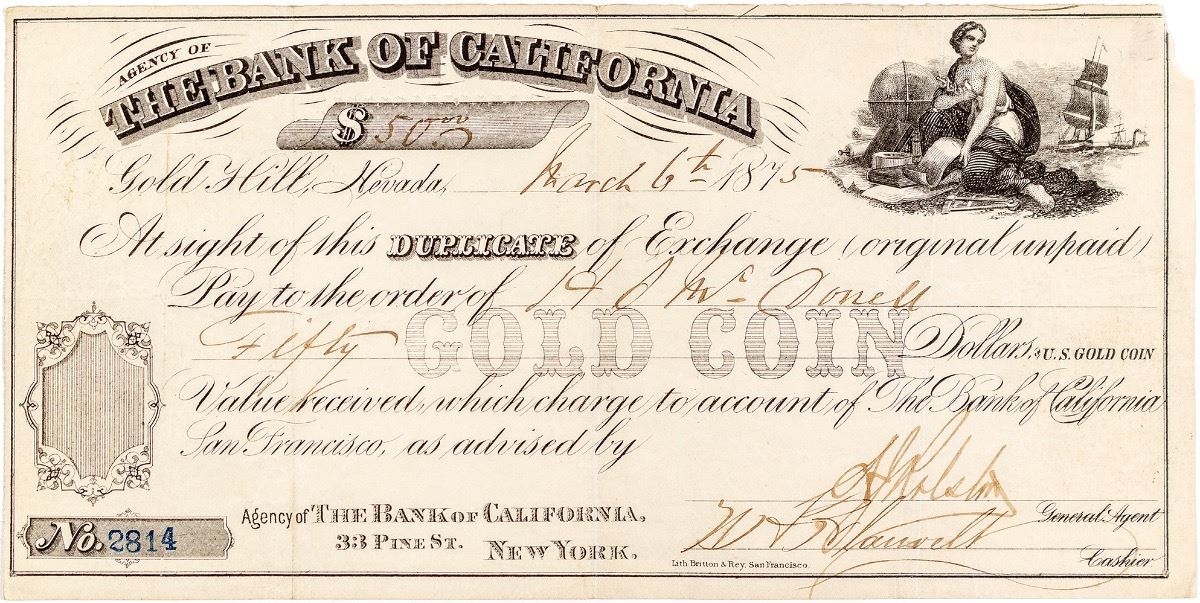 AGENCY OF
THE BANK OF CALIFORNIA
$ 50.00
Gold Hill, Nevada, March 6th 1875
At sight of this DUPLICATE of Exchange (original unpaid)
Pay to the order of Mc Donell
Fifty GOLD COIN Dollars, U.S. GOLD COIN
Value received, which charge to account of The Bank of California
San Francisco, as advised by
Ralston
General Agent
Cashier
Agency of THE BANK OF CALIFORNIA,
33 PINE ST. NEW YORK.
No. 2814
Lith Britton & Rey, San Francisco.